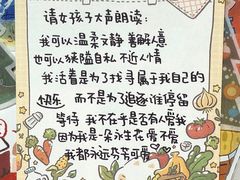 请女孩子大声朗读：
我可以温柔文静 善解人意
也可以狭隘自私 不近人情
我活着是为了找寻属于我自己的
快乐 而不是为了追逐谁停留
等待 我不在乎是否有人爱我
因为我是一朵永生花 爱不爱
我都永远芬芳可爱